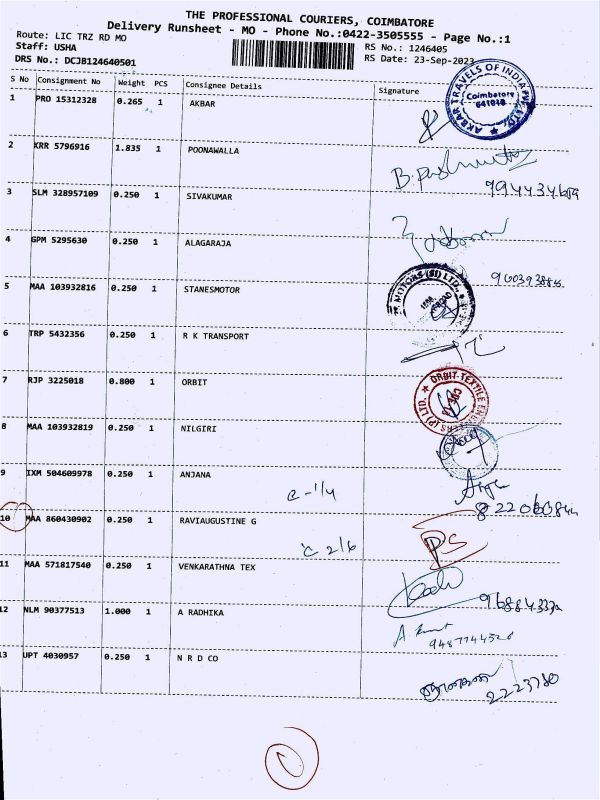 THE PROFESSIONAL COURIERS, COIMBATORE
Delivery Runsheet - MO - Phone No.:0422-3505555 - Page No.:1
Route: LIC TRZ RD MO
RS No.: 1246405
Staff: USHA
RS Date: 23-Sep-2023
DRS No.: DCJB124640501
S No Consignment No Weight PCS Consignee Details Signature
1 PRO 15312328 0.265 1 AKBAR
AKBAR TRAVELS OF INDIA PVT. LTD. Coimbatore
2 KRR 5796916 1.835 1 POONAWALLA
3 SLM 328957109 0.250 1 SIVAKUMAR
4 GPM 5295630 0.250 1 ALAGARAJA
5 MAA 103932816 0.250 1 STANESMOTOR
MOTORS (SI) LTD.
6 TRP 5432356 0.250 1 R K TRANSPORT
7 RJP 3225018 0.800 1 ORBIT
ORBIT TEXTILE (P) LTD.
8 MAA 103932819 0.250 1 NILGIRI
9 IXM 504609978 0.250 1 ANJANA
10 MAA 860430902 0.250 1 RAVIAUGUSTINE G
11 MAA 571817540 0.250 1 VENKARATHNA TEX
12 NLM 90377513 1.000 1 A RADHIKA
13 UPT 4030957 0.250 1 N R D CO
2223780